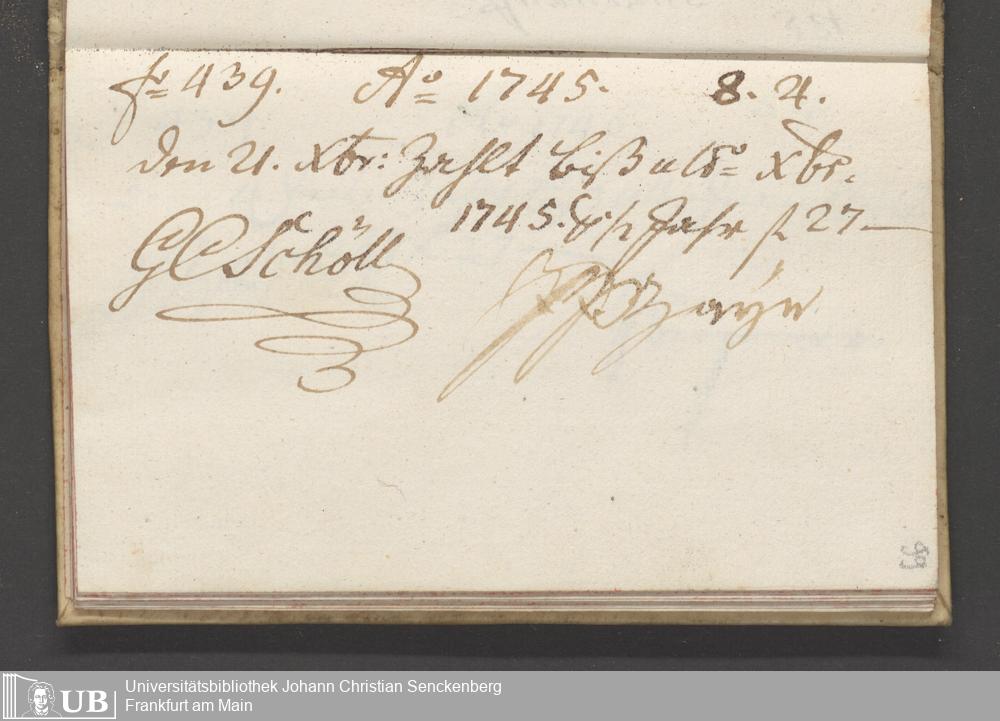 fo 439. Ao 1745. 8. 4.
den 21. Xbr: Zahlt biß ulto Xbr.
1745. 1/2 Jahr f 27 —
GC Schöll
UB
Universitätsbibliothek Johann Christian Senckenberg
Frankfurt am Main